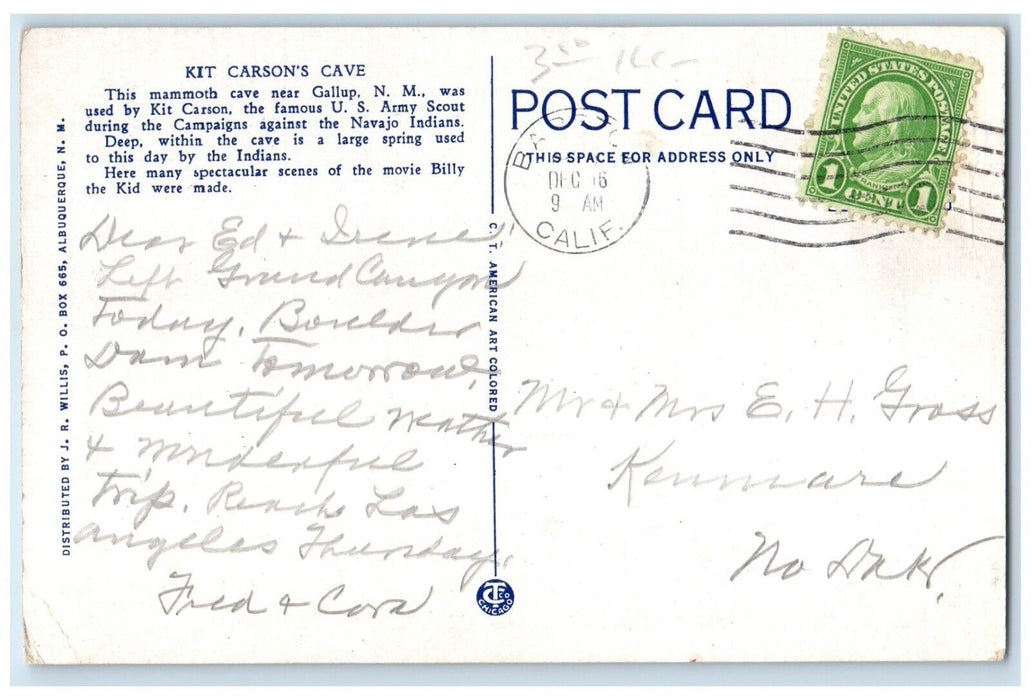 KIT CARSON'S CAVE
This mammoth cave near Gallup, N. M., was
used by Kit Carson, the famous U. S. Army Scout
during the Campaigns against the Navajo Indians.
Deep, within the cave is a large spring used
to this day by the Indians.
Here many spectacular scenes of the movie Billy
the Kid were made.
DISTRIBUTED BY J. R. WILLIS, P. O. BOX 665, ALBUQUERQUE, N. M.
Dear Ed & Irene,
Left Grand Canyon
Today. Boulder
Dam Tomorrow.
Beautiful Weather
& wonderful
Trip. Reach Los
Angeles Thursday.
Fred & Cora
C. T. AMERICAN ART COLORED
CT CO
CHICAGO
3rd
POST CARD
THIS SPACE FOR ADDRESS ONLY
DEC 16
9 AM
CALIF.
UNITED STATES POSTAGE
FRANKLIN
1 CENT 1
Mr & Mrs E. H. Gross
Kenmare
No Dak.